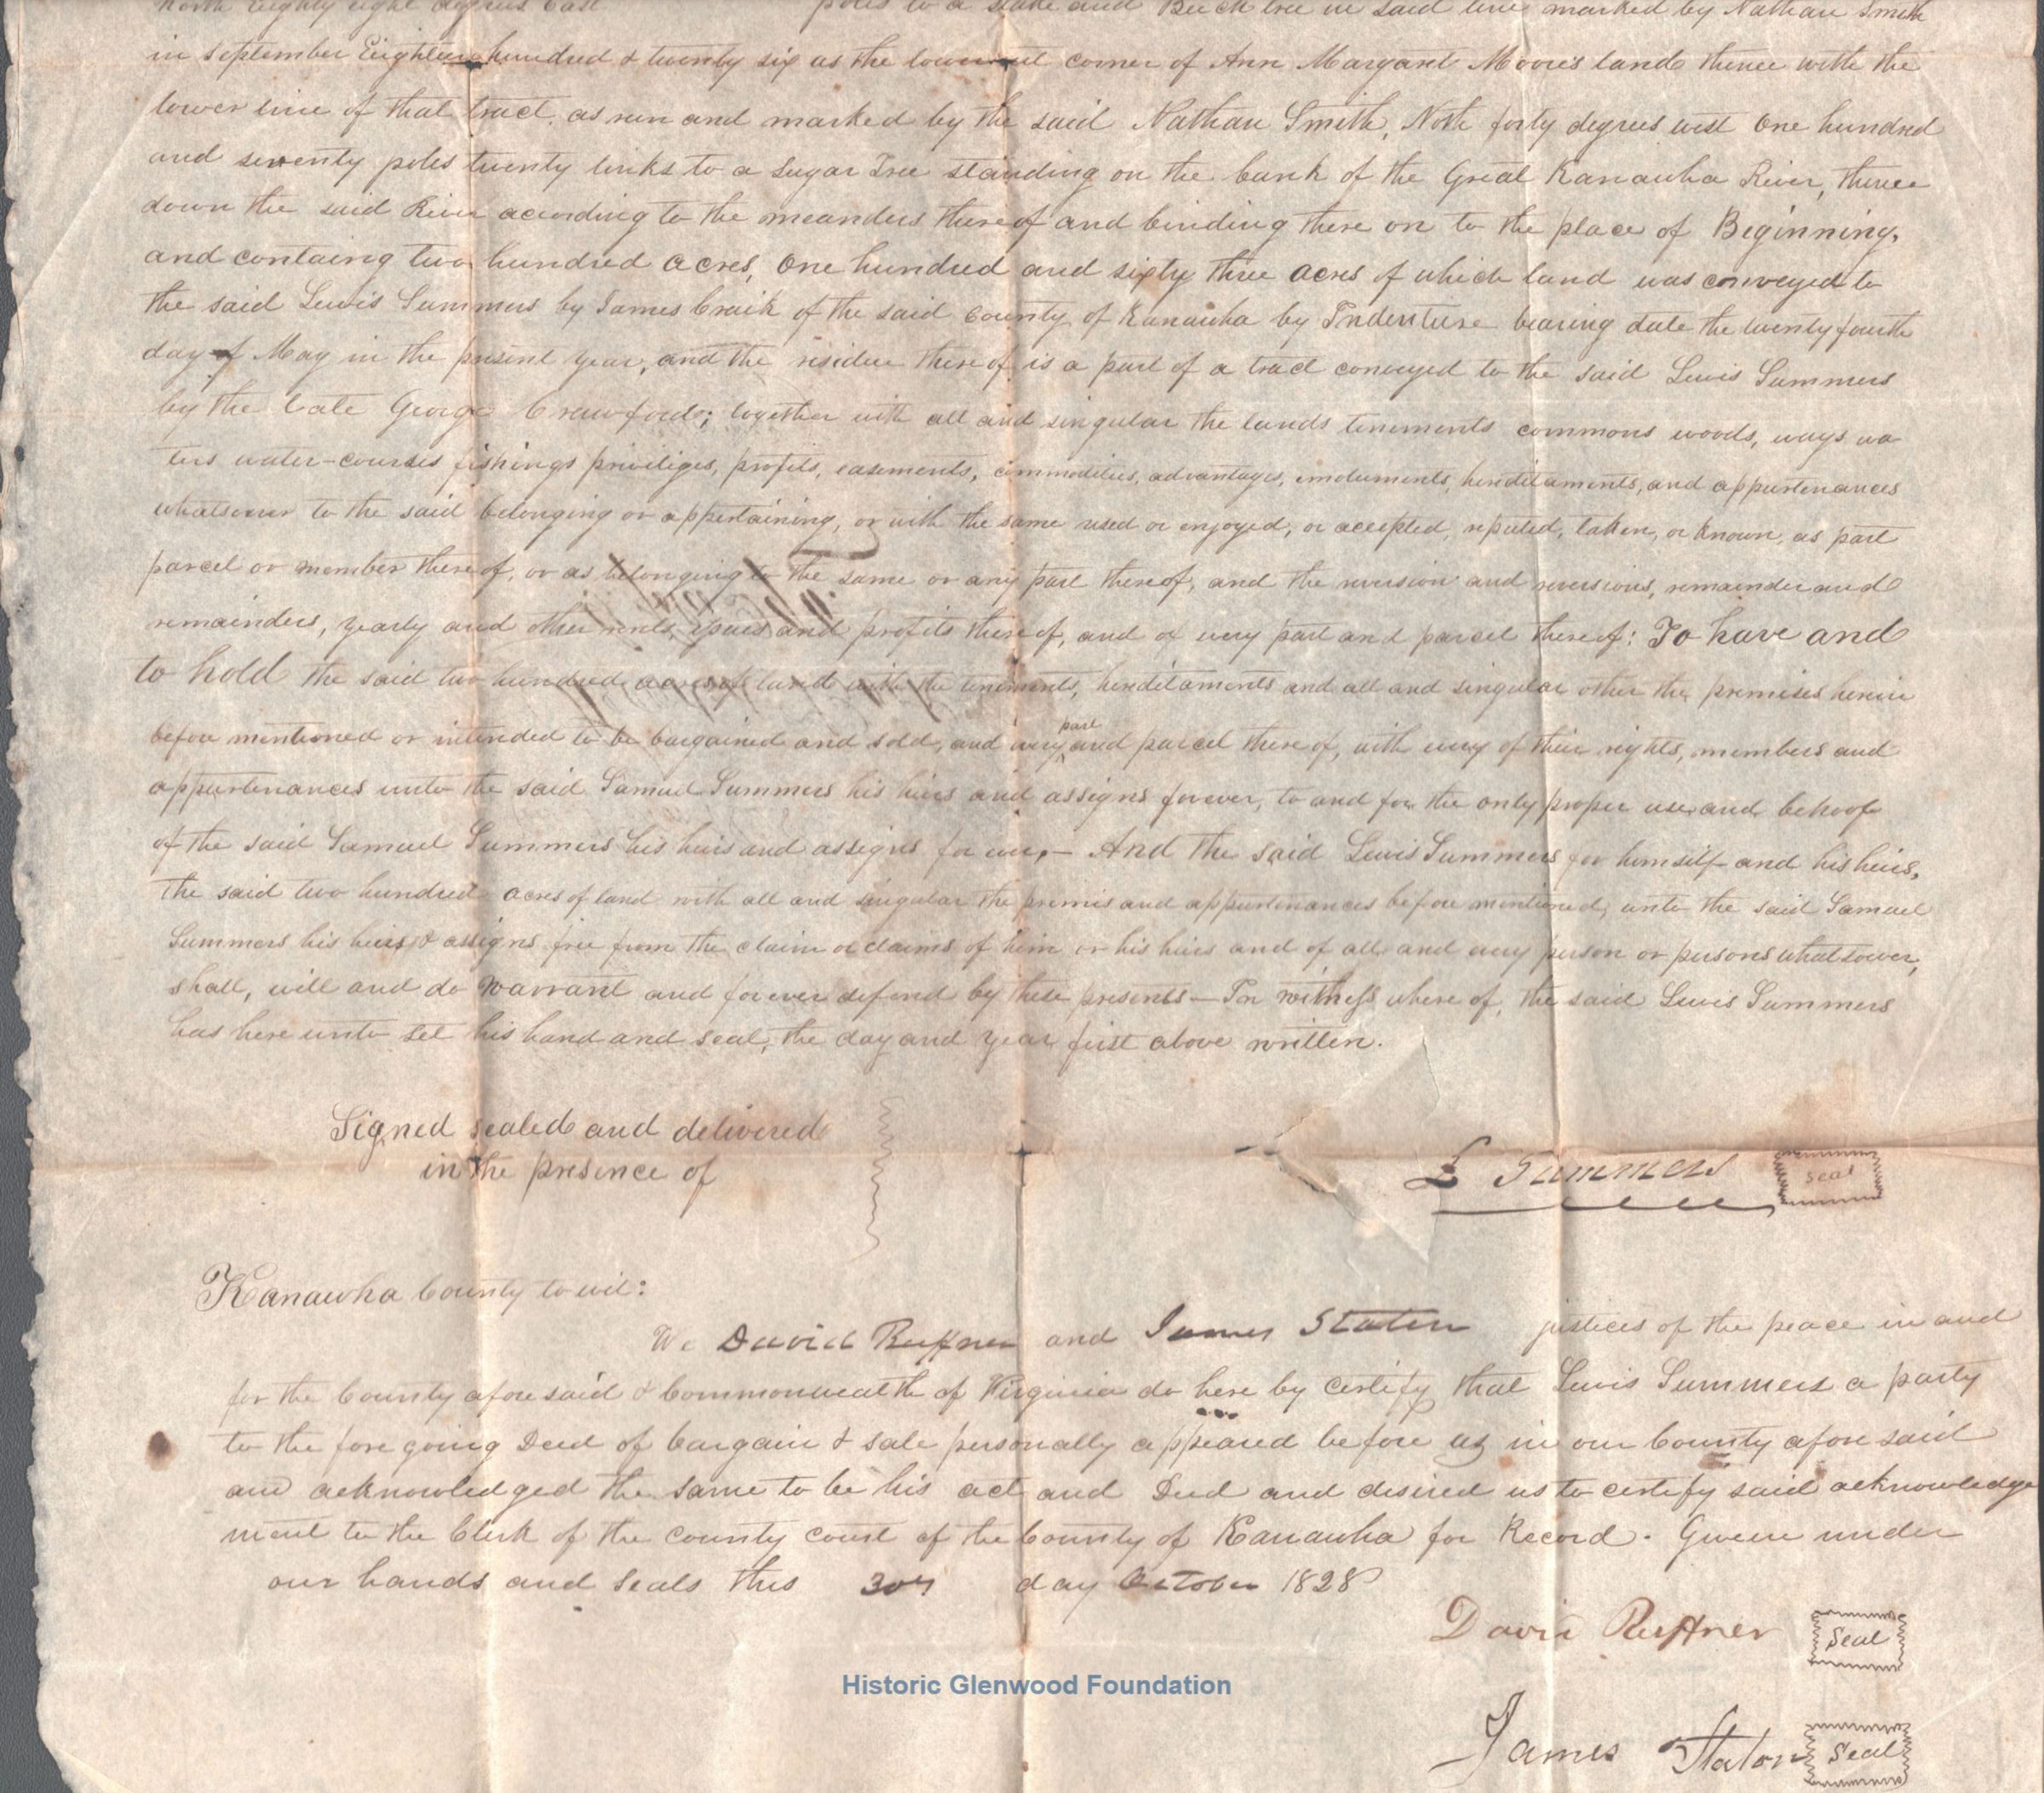 North Eighty eight degrees East poles to a stake and Beech tree in said line marked by Nathan Smith
in September Eighteen hundred & twenty six as the lowermost corner of Ann Margaret Moore's land thence with the
lower line of that tract, as run and marked by the said Nathan Smith, North forty degrees west One hundred
and seventy poles twenty links to a Sugar Tree standing on the bank of the Great Kanawha River, thence
down the said River according to the meanders there of and binding there on to the place of Beginning,
and containg two hundred acres, One hundred and sixty three acres of which land was conveyed to
the said Lewis Summers by James Craik of the said County of Kanawha by Indenture bearing date the twenty fourth
day of May in the present year, and the residue there of is a part of a tract conveyed to the said Lewis Summers
by the late George Crawford; together with all and singular the lands tenements commons woods, ways wa-
ters water-courses fishings priviliges, profits, easements, commodities, advantages, emoluments, hereditaments, and appurtenances
whatsoever to the said belonging or appertaining, or with the same used or enjoyed, or accepted, reputed, taken, or known, as part
parcel or member there of, or as belonging to the same or any part thereof, and the reversion and reversions, remainder and
remainders, yearly and other rents, issues and profits there of, and of every part and parcel there of: To have and
to hold the said two hundred acres of land with the tenements, hereditaments and all and singular other the premises herein
before mentioned or intended to be bargained and sold, and every part and parcel there of, with every of their rights, members and
appurtenances unto the said Samuel Summers his heirs and assigns forever, to and for the only proper use and behoof
of the said Samuel Summers his heirs and assigns for ever,— And the said Lewis Summers for himself and his heirs,
the said two hundred acres of land with all and singular the premis and appurtenances before mentioned, unto the said Samuel
Summers his heirs & assigns free from the claim or claims of him or his heirs and of all and every person or persons whatsoever,
shall, will and do warrant and forever defend by these presents— In witness where of, the said Lewis Summers
has here unto set his hand and seal, the day and year first above written.
Signed sealed and delivered
in the presence of
L Summers Seal
Kanawha County to wit:
We David Ruffner and James Staten justices of the peace in and
for the County afore said & Commonwealth of Virginia do here by certify that Lewis Summers a party
to the fore going Deed of bargain & sale personally appeared before us in our County afore said
and acknowledged the same to be his act and Deed and desired us to certify said acknowledge
ment to the Clerk of the county court of the County of Kanawha for Record. Given under
our hands and seals this day October 1828
David Ruffner Seal
Historic Glenwood Foundation
James Staton Seal